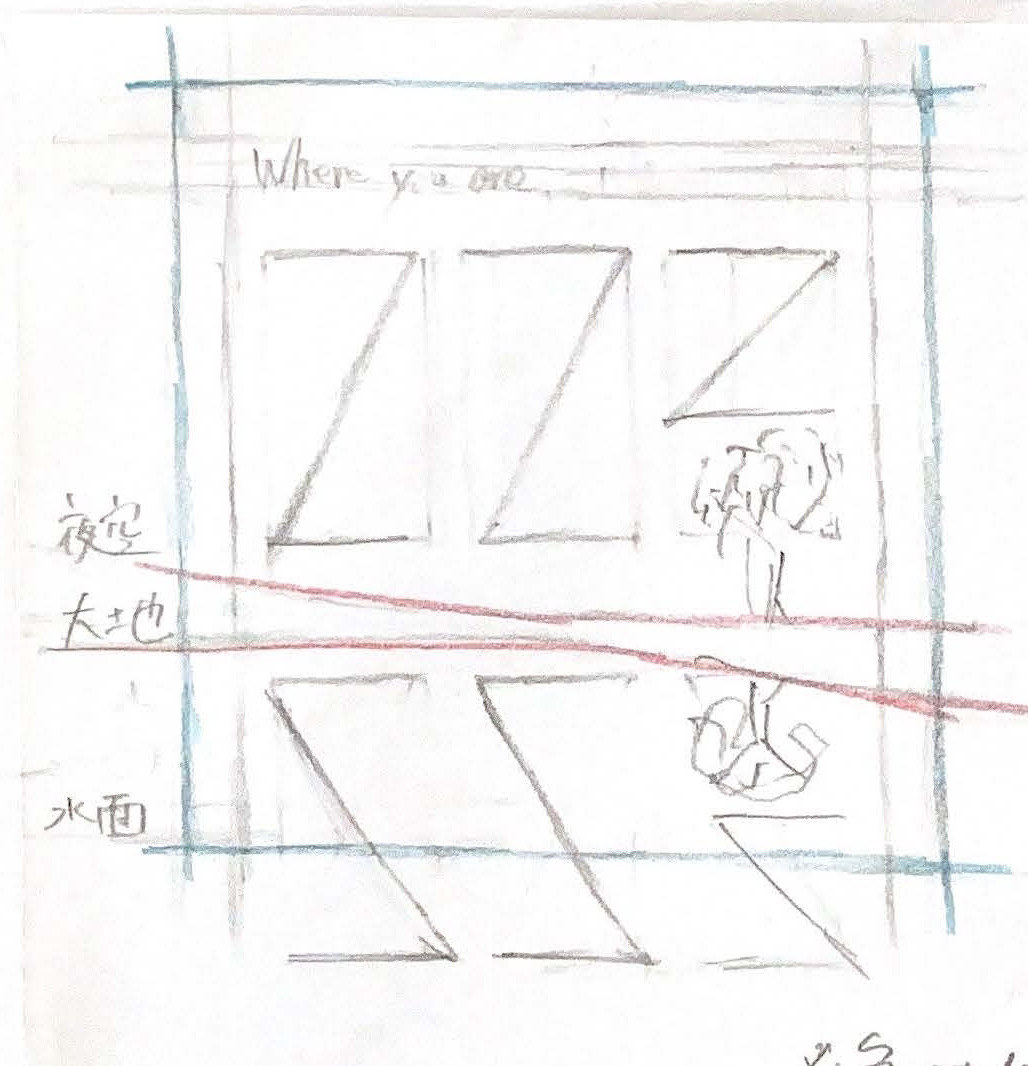 Where you are
ZZZ
夜空
大地
水面